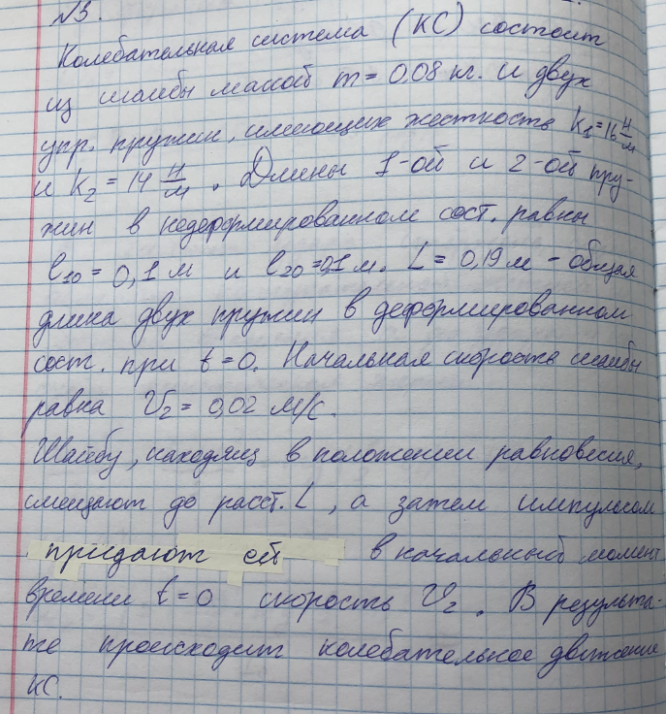 №3.
Колебательная система (КС) состоит
из шайбы массой m = 0,08 кг. и двух
упр. пружин, имеющих жесткость k₁ = 16 Н/м
и k₂ = 14 Н/м. Длины 1-ой и 2-ой пру-
жин в недеформированном сост. равны
l₁₀ = 0,1 м и l₂₀ = 0,1 м. L = 0,19 м - общая
длина двух пружин в деформированном
сост. при t = 0. Начальная скорость шайбы
равна V₂ = 0,02 м/с.
Шайбу, находящ в положении равновесия,
смещают до расст. L, а затем импульсом
придают ей в начальный момент
времени t = 0 скорость V₂. В результа-
те происходит колебательное движение
КС.